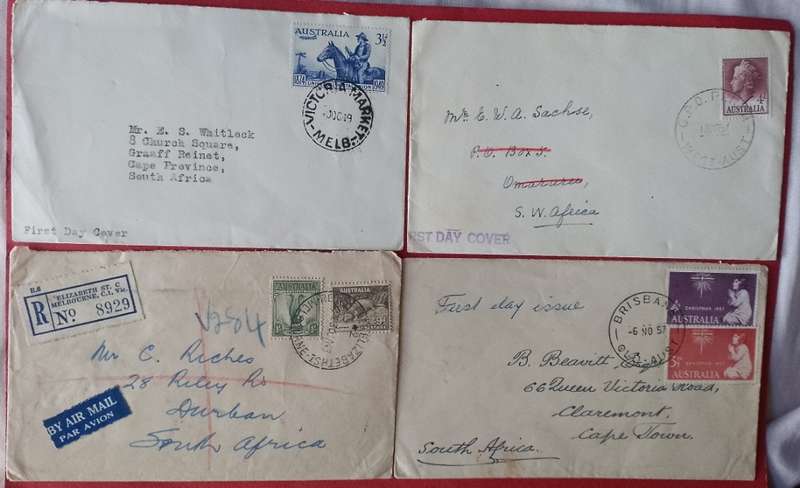 AUSTRALIA 3½d
VICTORIA MARKET
MELB
Mr. E. S. Whitlock
8 Church Square,
Graaff Reinet,
Cape Province,
South Africa
First Day Cover
4d
G.P.O. PERTH
WEST-AUST
Mr. E. W. A. Sachse,
P.O. Box
Omaruru,
S.W. Africa
FIRST DAY COVER
R.6
ELIZABETH ST.
MELBOURNE, C.1, Vic
R No 8929
AUSTRALIA
ELIZABETH ST
Mr C. Riches
28 Riley Rd
Durban
South Africa
BY AIR MAIL
PAR AVION
First day issue
BRISBANE
-6 NO 57
QLD-AUST
CHRISTMAS 1957
AUSTRALIA
CHRISTMAS 1957
AUSTRALIA
B. Beavitt,
66 Queen Victoria Road,
Claremont,
Cape Town.
South Africa.